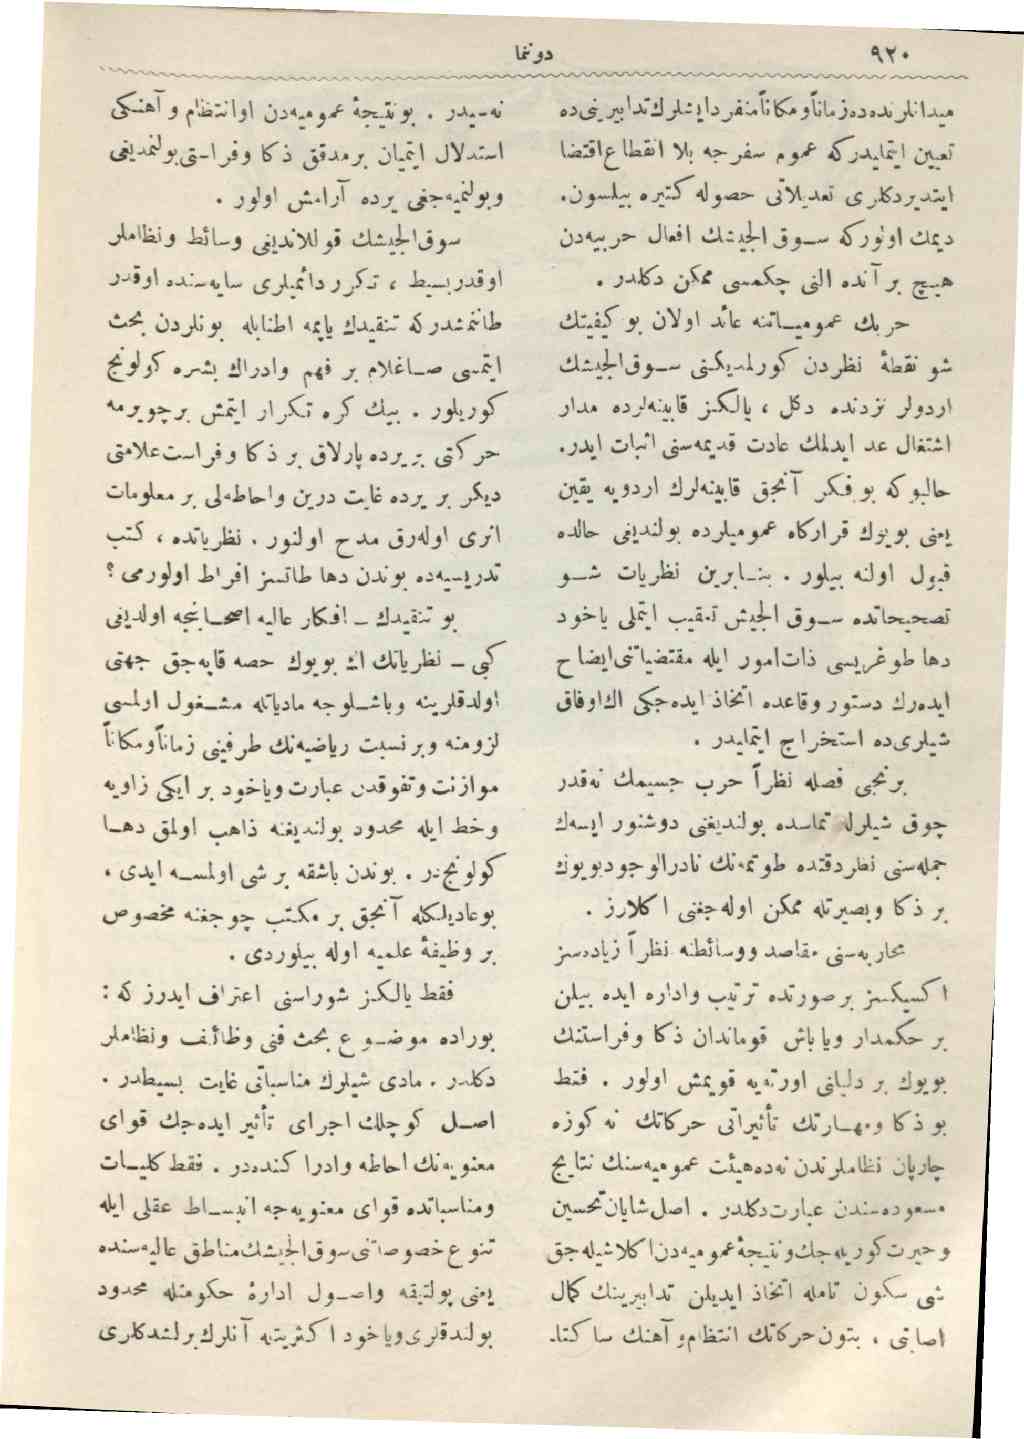 ٩٢٠
دوننما
ميدانلرنده‌ده زماناً ومكاناً منفرد ايشلرك تدابيرينى‌ده
تعيين ايتمليدركه عموم سفرجه بلا انقطاع اقتضا
ايتديردكلرى تعديلاتى حصوله كتيره بيلسون.
ديمك اولوركه ســوق الجيشك افعال حربيه‌دن
هيــچ بر آنده النى چكمسى ممكن دكلدر .
حربك عموميــاتنه عائد اولان بو كيفيتك
شو نقطهٔ نظردن كورلمديكنى ســوق الجيشك
اردولر نزدنده دكل ، يالـكـز قابينه‌لرده مدار
اشتغال عد ايدلمك عادت قديمه‌سنى اثبات ايدر.
حالبوكه بو فـكر آنجق قابينه‌لرك اردويه يقين
يعنى بويوك قراركاه عموميلرده بولنديغى حالده
قبول اولنه بيلور . بنــابرين نظريات شــو
تصحيحاتده ســوق الجيش تعقيب ايتملى ياخود
دها طوغريسى ذات امور ايله مقتضياتنى ايضاح
ايده‌رك دستور وقاعده اتخاذ ايده‌جكى اك اوفاق
شيلرى‌ده استخراج ايتمليدر .
برنجى فصله نظراً حرب جسيمك نه‌قدر
چوق شيلرله تماسده بولنديغنى دوشنور ايسه‌ك
جمله‌سنى نظر دقتده طوتمه‌نك نادر الوجود بويوك
بر ذكا وبصيرتله ممكن اوله‌جغنى اكلارز .
محاربه‌سنى مقاصد ووسائطنه نظراً زياده‌سز
اكسيكسز بر صورتده ترتيب واداره ايده بيلن
بر حكمدار ويا باش قوماندان ذكا وفراستنك
بويوك بر دليلنى اورته‌يه قويمش اولور . فقط
بو ذكا ومهــارتك تأثيراتى حركاتك نه كوزه
چارپان نظاملرندن نه‌ده هيئت عموميه‌سنك نتايج
مسعوده‌سندن عبارت دكلدر . اصل شايان تحسين
وحيرت كوريله‌جك ونتيجهٔ عموميه‌دن اكلاشيله‌جق
شى سكون تامله اتخاذ ايديلن تدابيرينك كمال
اصابتى ، بتون حركاتك انتظام وآهنك ساكتا-
نه‌سيدر . بو نتيجهٔ عموميه‌دن او انتظام وآهنــكى
استدلال ايتميان بر مدقق ذكا وفراستى بولنمديغى
وبولنميه‌جغى يرده آرامش اولور .
سوق الجيشك قوللانديغى وسائط ونظاملر
اوقدر بسيط ، تـكرر دائميلرى سايه‌سنده اوقدر
طاننمشدركه تنقيدك ياپمه اطنابله بونلردن بحث
ايتمسى صــاغلام بر فهم وادراك بشره كولونج
كوريلور . بيك كره تـكرار ايتمش بر چويرمه
حركتى بر يرده پارلاق بر ذكا وفراست علامتى
ديكر بر يرده غايت درين واحاطه‌لى بر معلومات
اثرى اوله‌رق مدح اولنور . نظرياتده ، كتب
تدريسيه‌ده بوندن دها طاتسز افراط اولورمى ؟
بو تنقيدك ــ افكار عاليه اصحــابنجه اولديغى
كبى ــ نظرياتك اك بويوك حصه قاپه‌جق جهتى
اولدقلرينه وباشــلوجه مادياتله مشــغول اولمسى
لزومنه وبر نسبت رياضيه‌نك طرفينى زماناً ومكاناً
موازنت وتفوقدن عبارت وياخود بر ايكى زاويه
وخط ايله محدود بولنديغنه ذاهب اولمق دهــا
كولونجدر . بوندن باشقه بر شى اولمســه ايدى ،
بو عاديلـكله آنجق بر مكـتب چوجغنه مخصوص
بر وظيفهٔ علميه اوله بيلوردى .
فقط يالـكـز شوراسنى اعتراف ايدرز كه :
بوراده موضــوع بحث فنى وظائف ونظاملر
دكلدر . مادى شيلرك مناسباتى غايت بسيطدر .
اصــل كوچلك اجراى تأثير ايده‌جك قواى
معنويه‌نك احاطه وادراكنده‌در . فقط كليــات
ومناسباتده قواى معنويه‌جه انبســاط عقلى ايله
تنوع خصوصاتنى سوق الجيشك مناطق عاليه‌سنده
يعنى پولتيقه واصــول ادارهٔ حكومتله محدود
بولندقلرى وياخود اكثريتنه آنلرك برلشدكلرى